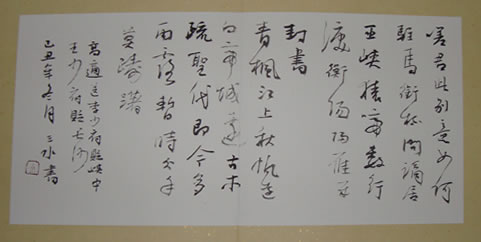 嗟君此别意如何
駐馬銜杯問謫居
巫峽猿啼數行
淚衡陽歸雁幾
封書
青楓江上秋帆遠
白帝城邊古木
疏聖代即今多
雨露暫時分手
莫躊躇
高適送李少府貶峽中
王少府貶長沙
己丑年冬月三水書